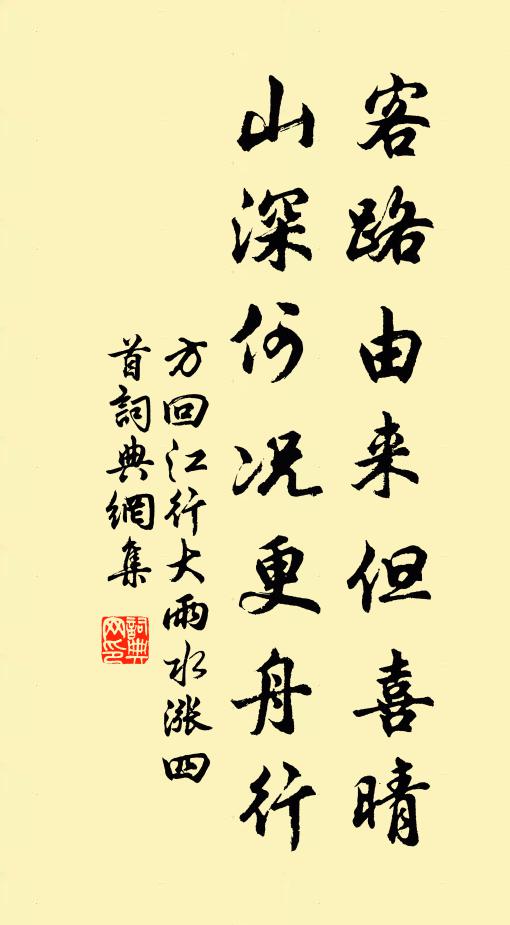 客路由来但喜晴
山深何况更舟行
方回江行大雨水涨四
首詞典網集
詞典
网印